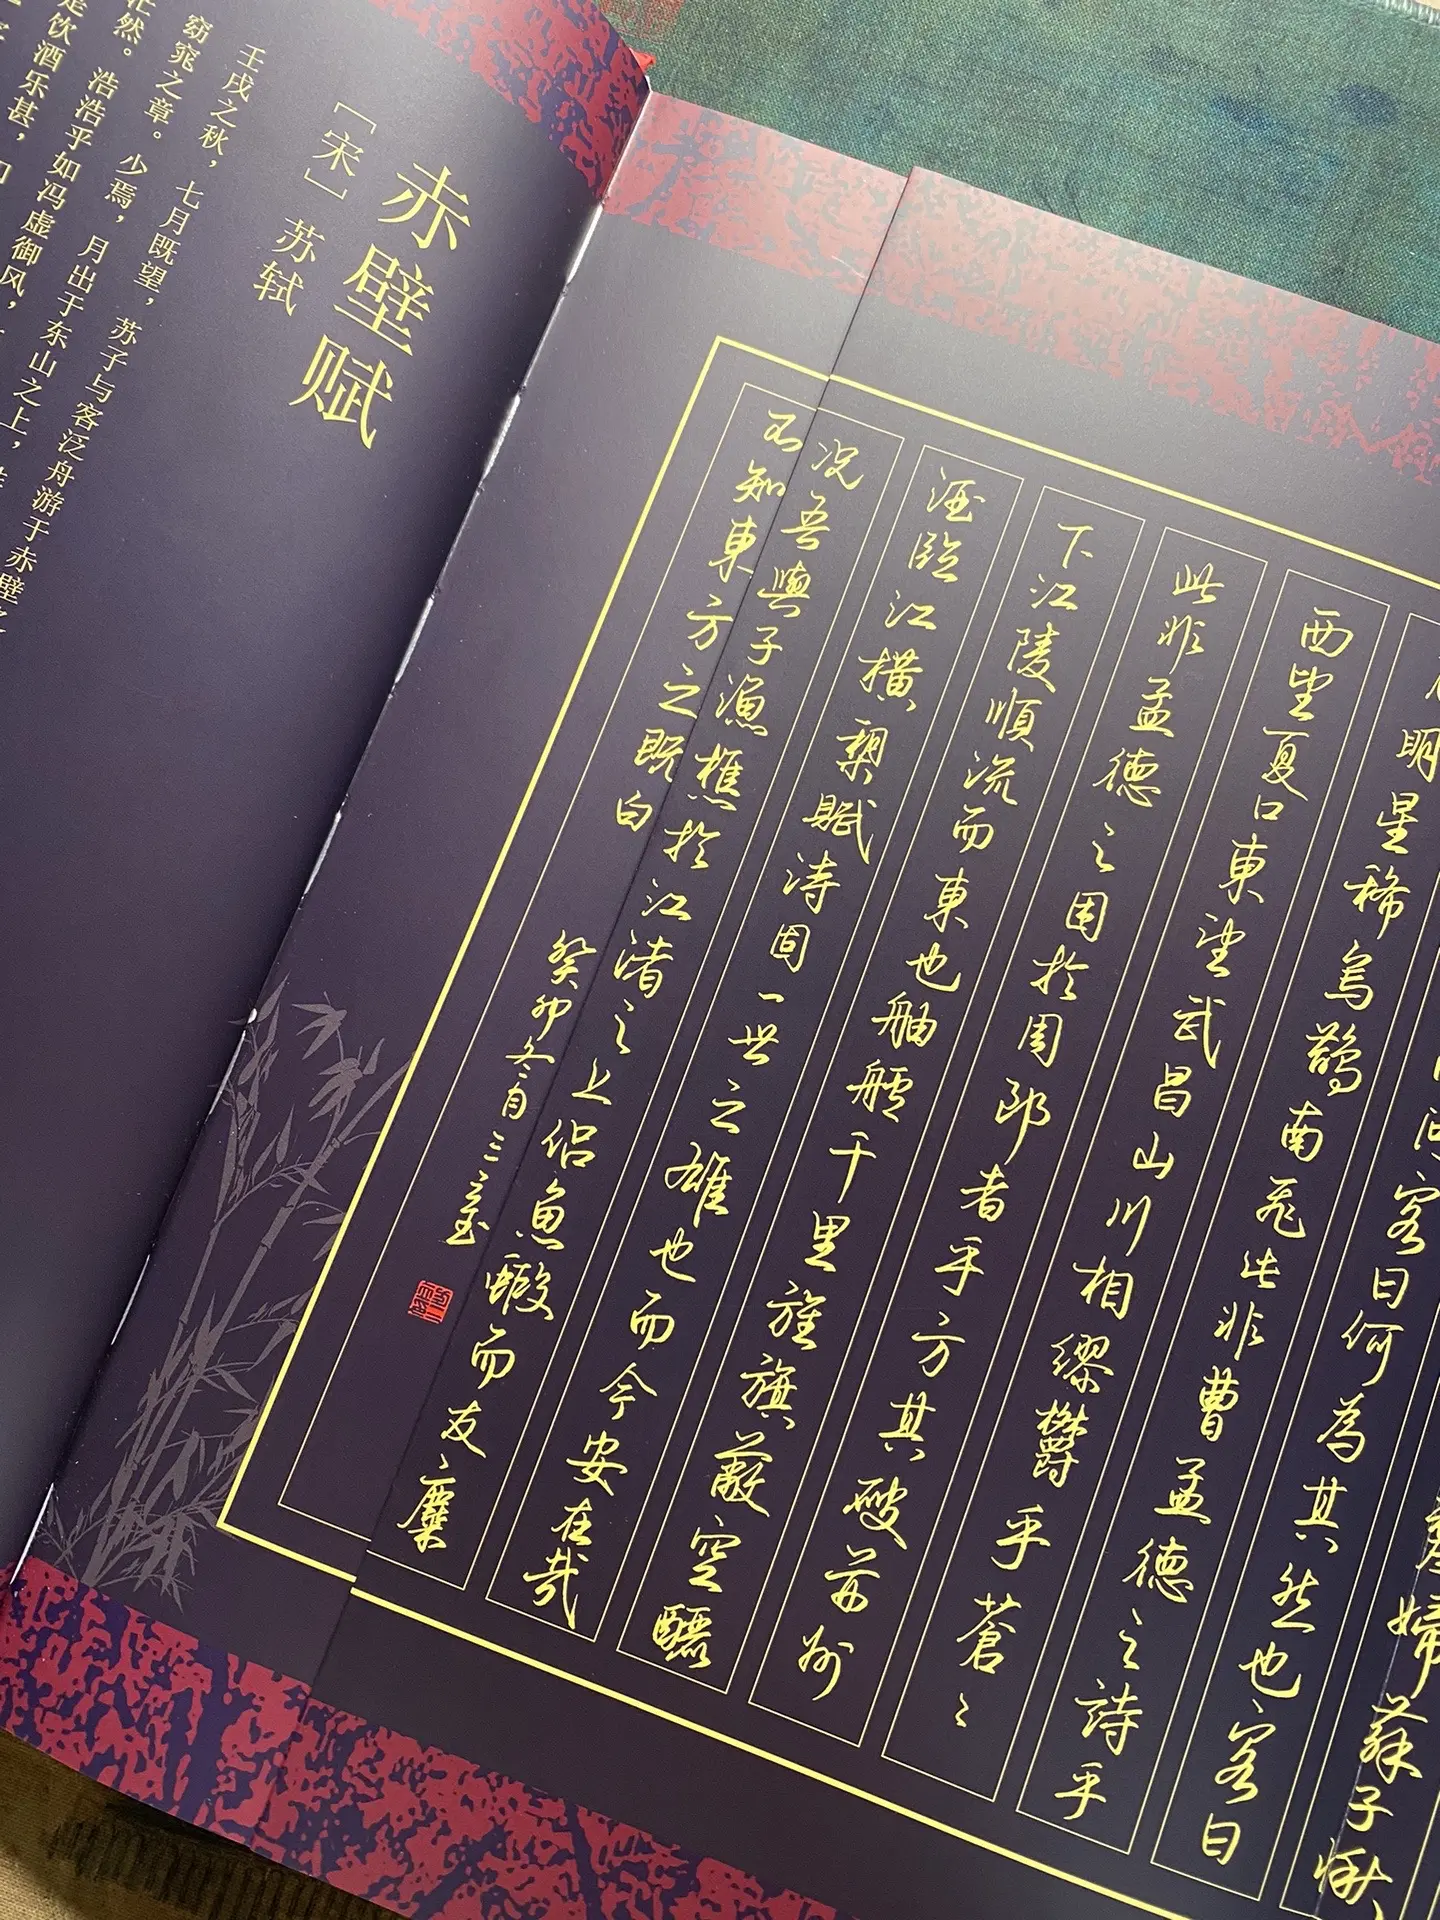 赤壁赋
［宋］苏轼
壬戌之秋，七月既望，苏子与客泛舟游于赤壁之
窈窕之章。少焉，月出于东山之上，
茫然。浩浩乎如冯虚御风，
是饮酒乐甚，
婦蘇子愀
問客曰何為其然也客曰
月明星稀烏鵲南飛此非曹孟德之詩乎
西望夏口東望武昌山川相繆鬱乎蒼々
此非孟德之困於周郎者乎方其破荊州
下江陵順流而東也舳艫千里旌旗蔽空釃
酒臨江橫槊賦詩固一世之雄也而今安在哉
況吾與子漁樵於江渚之上侶魚蝦而友麋
不知東方之既白
癸卯冬月